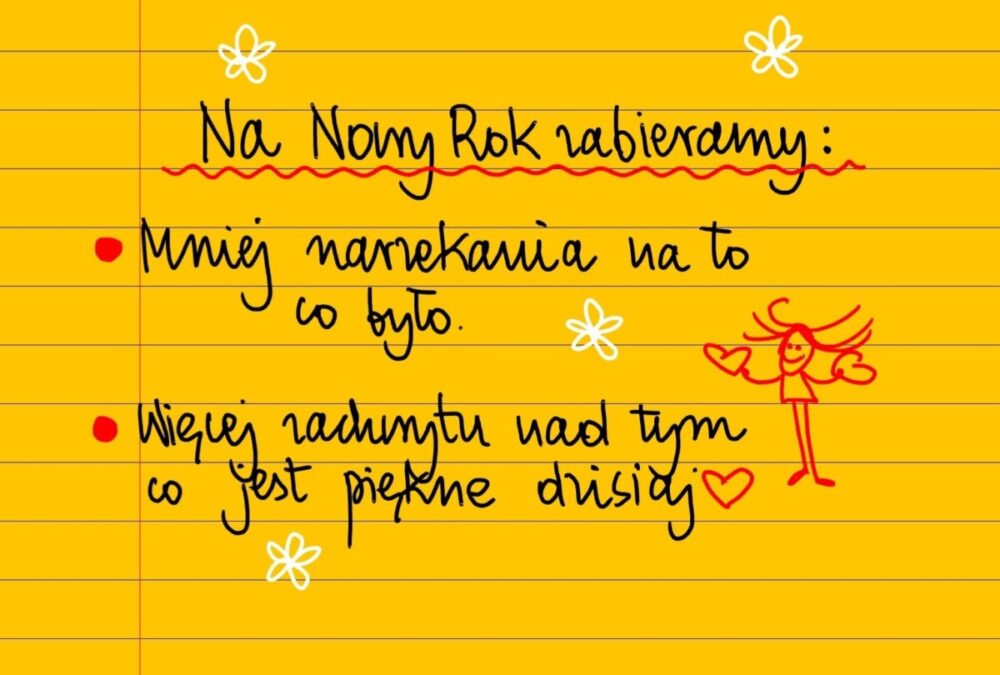 Na Nowy Rok zabieramy:
• Mniej narzekania na to
co było.
• Więcej zachwytu nad tym
co jest piękne dzisiaj